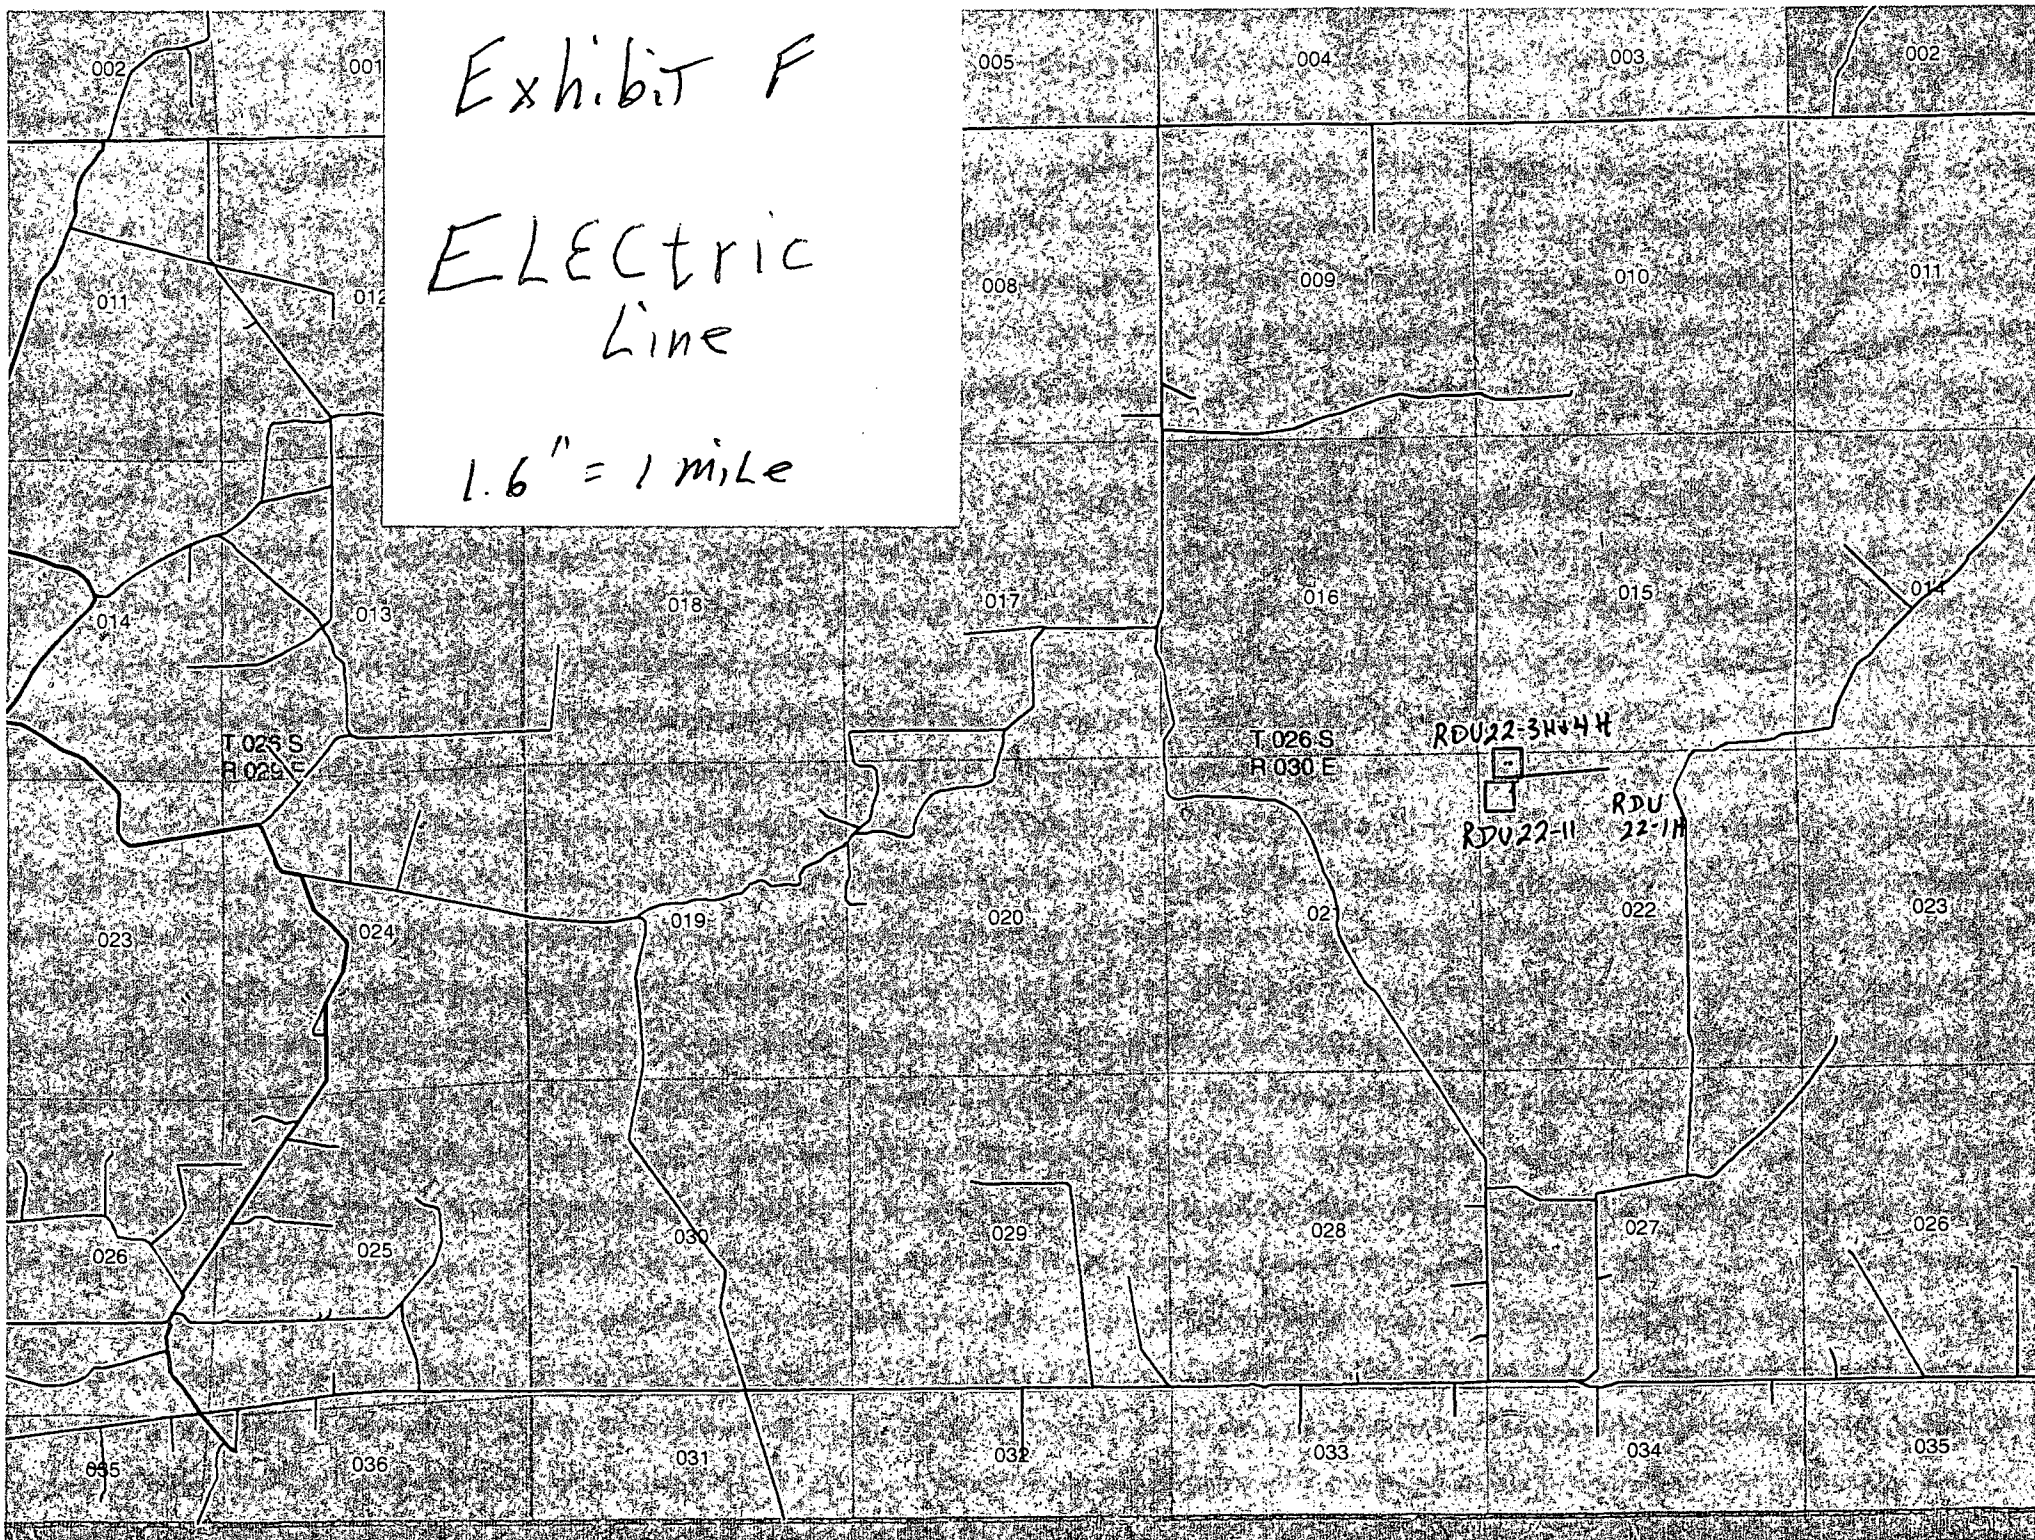 Exhibit F
ELECtric
Line
1.6" = 1 miLe
002 001 005 004 003 002
011 012 008 009 010 011
014 013 018 017 016 015 014
T 026 S
R 029 E
T 026 S
R 030 E
RDU22-3H&4H
RDU22-11
RDU
22-1H
023 024 019 020 021 022 023
026 025 030 029 028 027 026
035 036 031 032 033 034 035